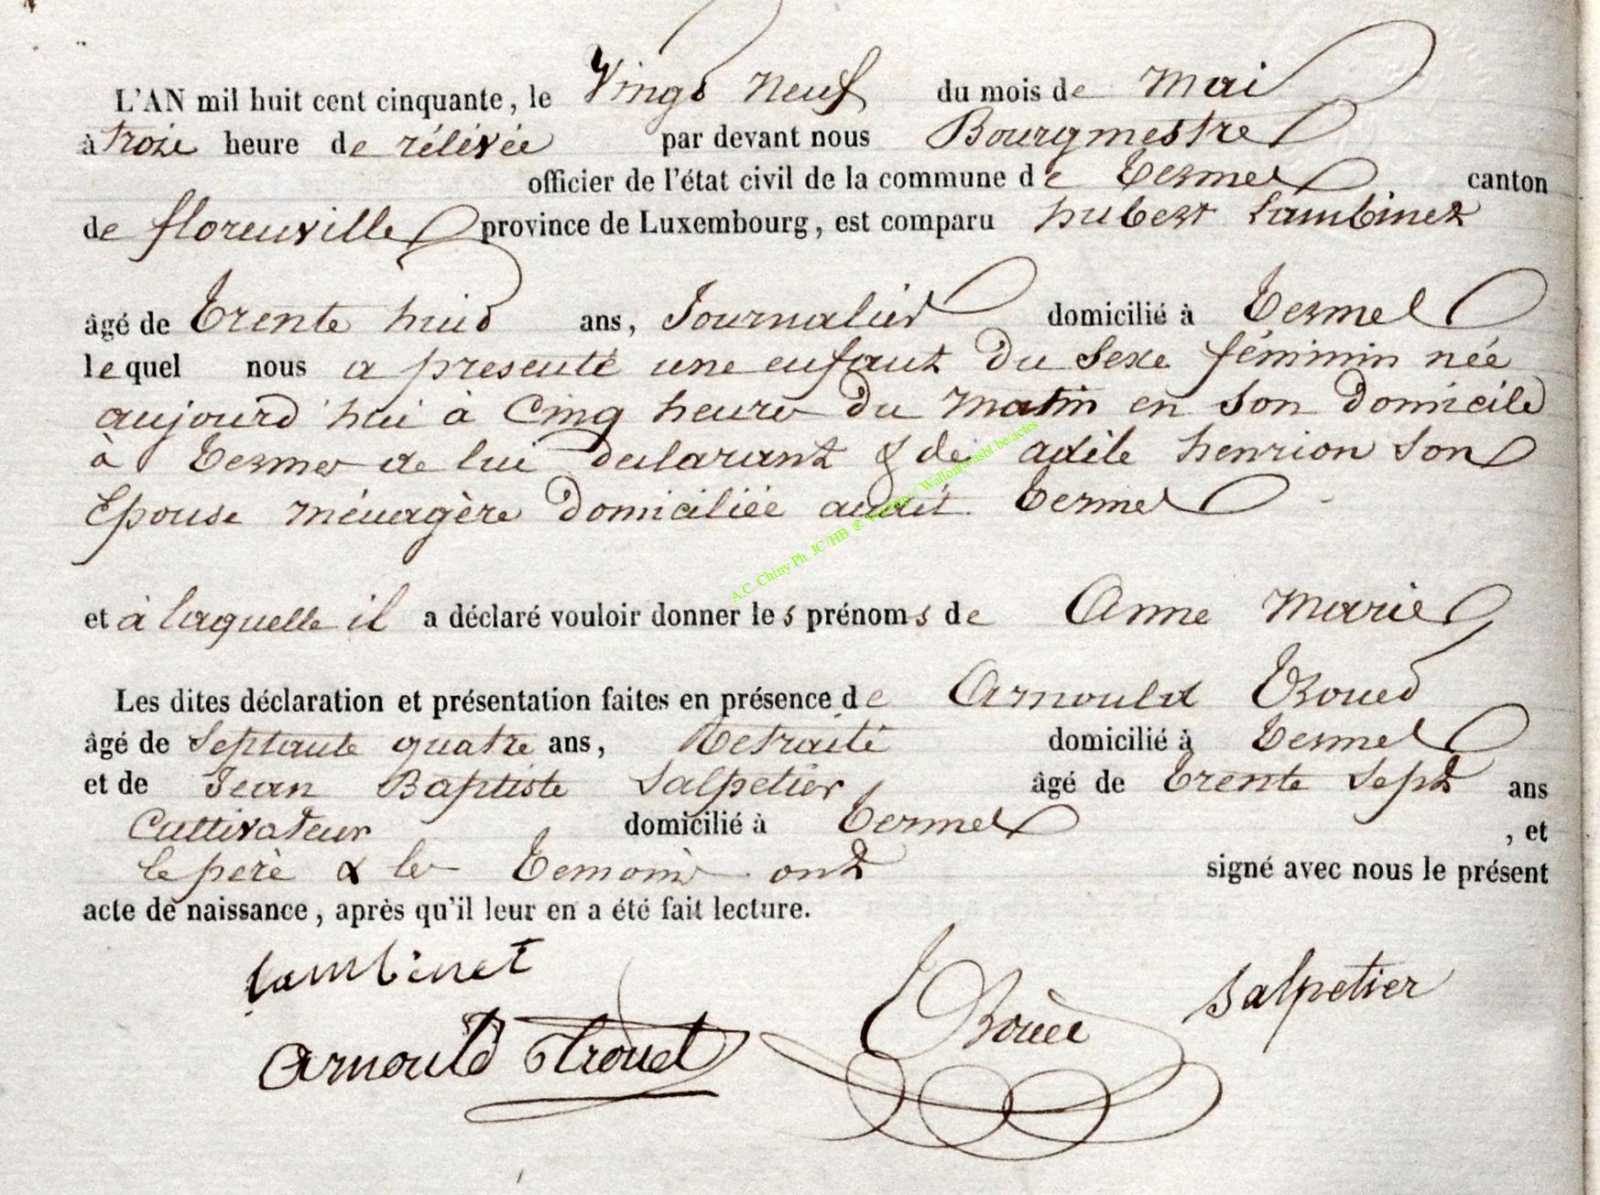 L'AN mil huit cent cinquante, le Vingt Neuf du mois de Mai
à troie heure de rélévée par devant nous Bourgmestre
officier de l'état civil de la commune de Termes canton
de florenville province de Luxembourg, est comparu hubert Lambinet
âgé de Trente huit ans, Journalier domicilié à Termes
lequel nous a presenté une enfant du Sexe féminin née
aujourd'hui à Cinq heures du Matin en son Domicile
à Termes de lui déclarant & de adèle henrion son
Epouse ménagère Domiciliée audit Termes
et à laquelle il a déclaré vouloir donner les prénoms de Anne Marie
Les dites déclaration et présentation faites en présence de Arnould Troued
âgé de Septante quatre ans, Retraité domicilié à Termes
et de Jean Baptiste Salpetier âgé de Trente Sept ans
Cultivateur domicilié à Termes , et
le père & les Temoins ont signé avec nous le présent
acte de naissance, après qu'il leur en a été fait lecture.
Lambinet
Arnould Trouet Salpetier
A.C. Chiny Ph. JC/HB